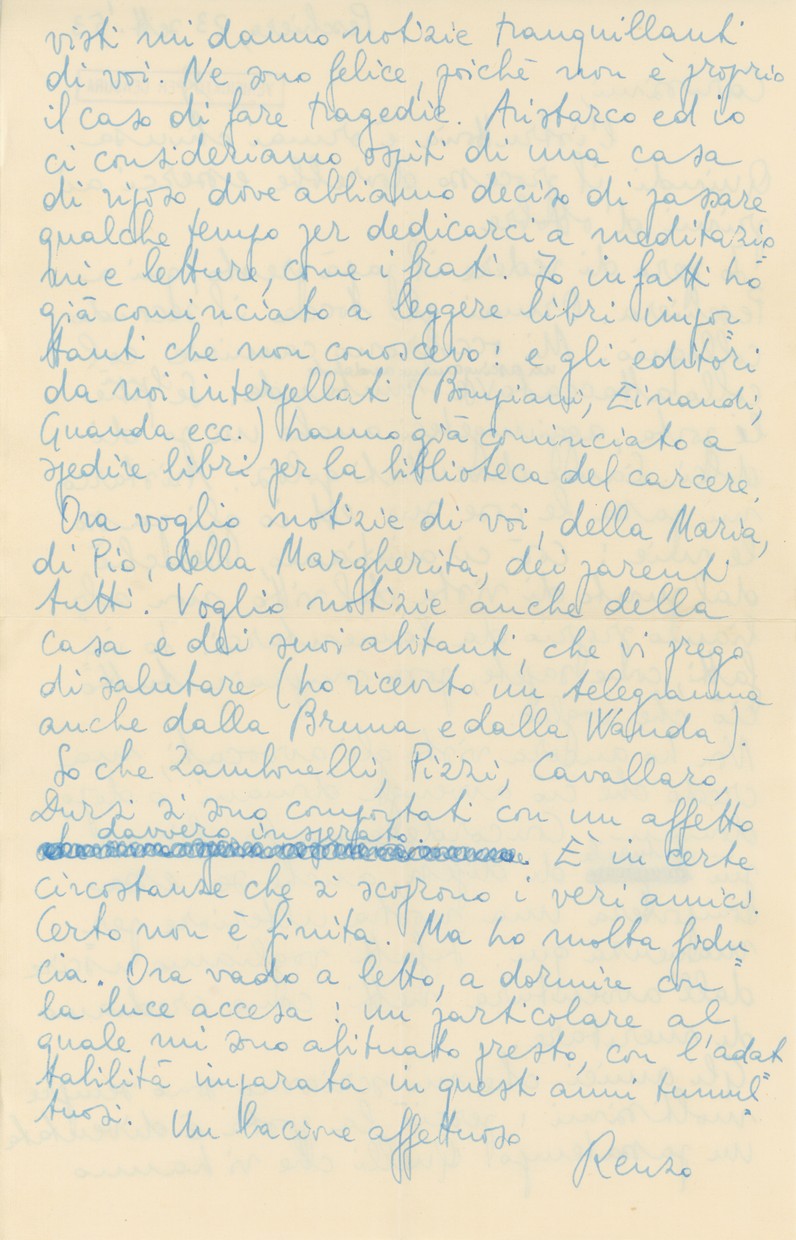 visti mi danno notizie tranquillanti
di voi. Ne sono felice, poiché non è proprio
il caso di fare tragedie. Aristarco ed io
ci consideriamo ospiti di una casa
di riposo dove abbiamo deciso di passare
qualche tempo per dedicarci a meditazio
ni e letture, come i frati. Io infatti ho
già cominciato a leggere libri impor=
tanti che non conoscevo: e gli editori
da noi interpellati (Bompiani, Einaudi,
Guanda ecc.) hanno già cominciato a
spedire libri per la biblioteca del carcere.
Ora voglio notizie di voi, della Maria,
di Pio, della Margherita, dei parenti
tutti. Voglio notizie anche della
casa e dei suoi abitanti, che vi prego
di salutare (ho ricevuto un telegramma
anche dalla Bruna e dalla Wanda).
So che Zambonelli, Pizzi, Cavallaro,
Dursi si sono comportati con un affetto
davvero insperato
. È in certe
circostanze che si scoprono i veri amici.
Certo non è finita. Ma ho molta fidu=
cia. Ora vado a letto, a dormire con=
la luce accesa: un particolare al
quale mi sono abituato presto, con l'adat
tabilità imparata in questi anni tumul=
tuosi. Un bacione affettuoso
Renzo